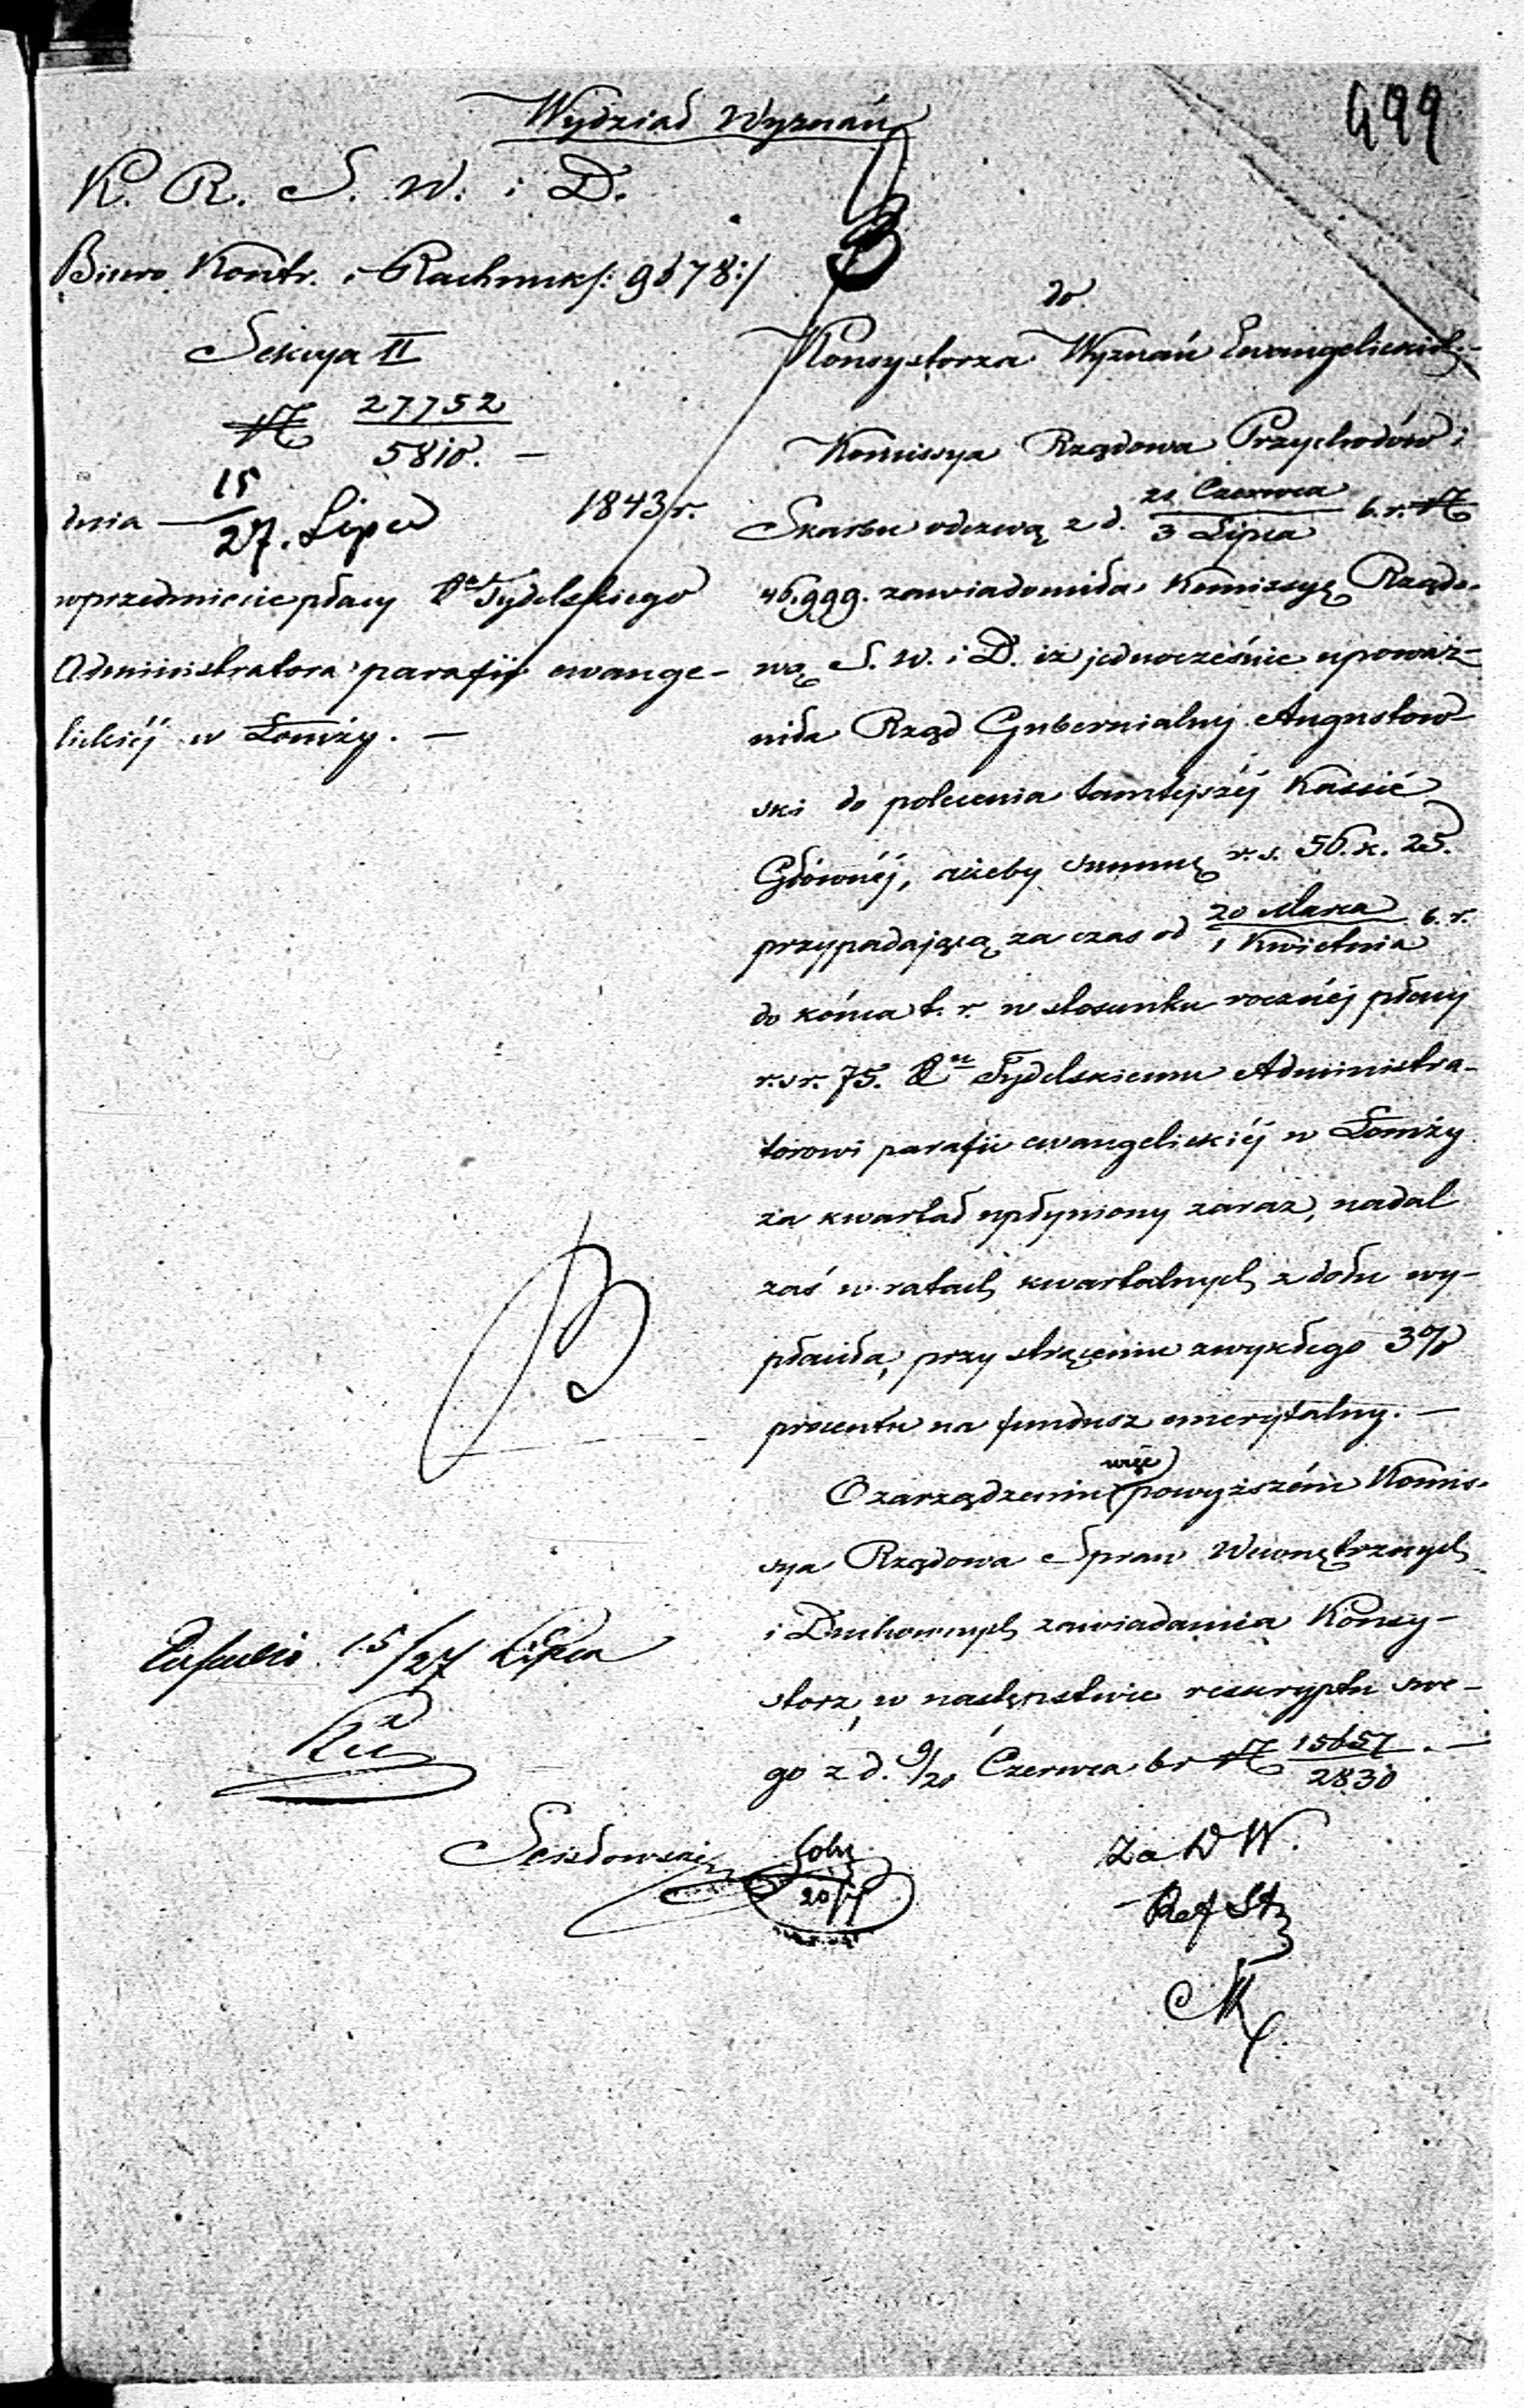 499
Wydział Wyznań
K. R. S. W. i D.
Biuro Kontr. i Rachunk/: 9678:/
Sekcya II
№ 27752/5810. —
dnia 15/27. Lipca 1843 r.
w przedmiocie płacy Xa Tydelskiego
Administratora parafii ewange-
lickiéj w Łomży. —
do
Konsystorza Wyznań Ewangelickich.
Kommissya Rządowa Przychodów i
Skarbu odezwą z d. 21 Czerwca/3 Lipca b. r. №
46,999. zawiadomiła Kommissyę Rządo-
wą S. W. i D. iż jednocześnie upoważ-
niła Rząd Gubernialny Augustow-
ski do polecenia tamtejszéj Kassie
Głównéj, ażeby summę r. s. 56. k. 25.
przypadającą za czas od 20 Marca/1 Kwietnia b. r.
do końca t. r. w stosunku rocznéj płacy
r. sr. 75. Xu Tydelskiemu Administra-
torowi parafii ewangelickiéj w Łomży
za kwartał upłyniony zaraz, nadal
zaś w ratach kwartalnych z dołu wy-
płaciła, przy strąceniu zwykłego 3%
procentu na fundusz emerytalny. —
O zarządzeniu więc powyższém Kommis-
sya Rządowa Spraw Wewnętrznych
i Duchownych zawiadamia Konsy-
storz, w następstwie reskryptu swe-
go z d. 9/20 Czerwca b r № 15657/2830. —
15/27 Lipca
20/7
Za D W.
Ref St